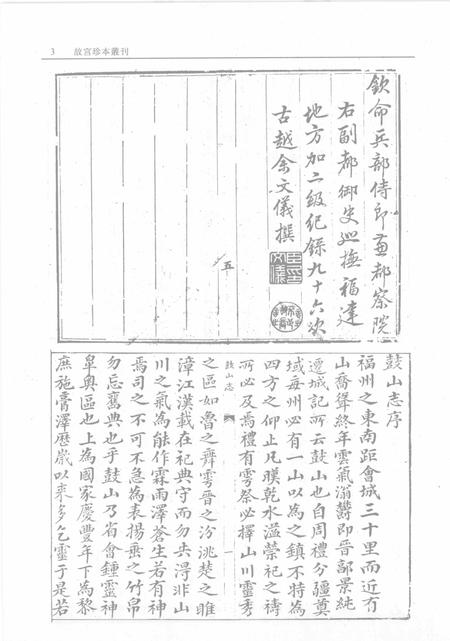 3 故宮珍本叢刊
欽命兵部侍郎兼都察院
右副都御史巡撫福建
地方加二級紀錄九十六次
古越余文儀撰
五
鼓山志序
福州之東南距會城三十里而近有
山喬聳終年雲氣滃鬱即晉郭景純
遷城記所云鼓山也自周禮分疆奠
域每州必有一山以為之鎮不特為
四方之仰止凡暵乾水溢禜祀之禱
所必及焉禮有雩祭必擇山川靈秀
鼓山志 一
之區如魯之舞雩晉之汾洮楚之睢
漳江漢載在祀典守而勿失淂非山
川之氣為能作霖雨澤蒼生若有神
焉司之不可不急為表揚垂之竹帛
勿忘舊典也乎鼓山乃省會鍾靈神
皐奧區也上為國家慶豐年下為黎
庶施膏澤歷歲以來多乞靈于是若